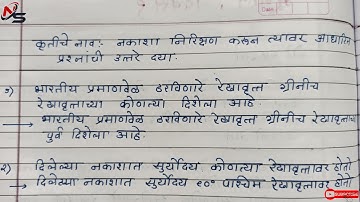 NS
कृतीचे नाव:- नकाशा निरिक्षण करून त्यावर आधारित
प्रश्नांची उत्तरे द्या.
१) भारतीय प्रमाणवेळ ठरविणारे रेखावृत्त ग्रीनीच
रेखावृत्ताच्या कोणत्या दिशेला आहे.
→ भारतीय प्रमाणवेळ ठरविणारे रेखावृत्त ग्रीनीच रेखावृत्ताच्या
पुर्व दिशेला आहे.
२) दिलेल्या नकाशात सुर्योदय कोणत्या रेखावृत्तावर होतो
→ दिलेल्या नकाशात सुर्योदय ९०° पश्चिम रेखावृत्तावर होतो